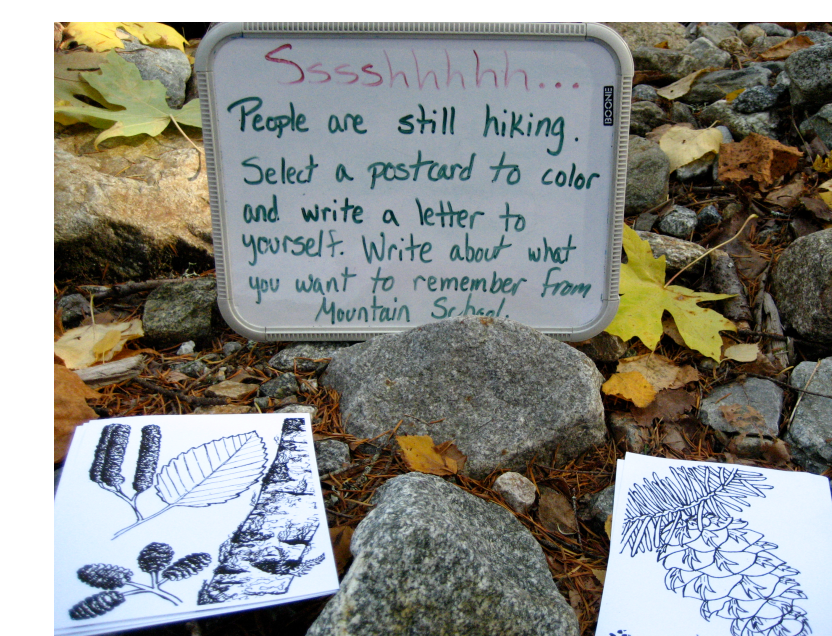 Sssshhhhh...
BOONE
People are still hiking.
Select a postcard to color
and write a letter to
yourself. Write about what
you want to remember from
Mountain School.